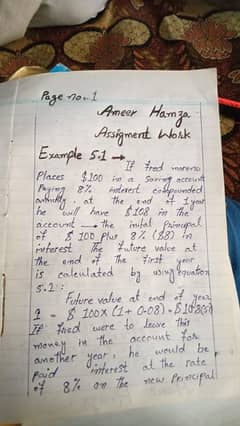 Page no. 1
Ameer Hamza
Assigment Work
Example 5.1 →
If Fred moreno
Places $100 in a Saving account
Paying 8% interest compounded
annually, at the end of 1 year
he will have $108 in the
account — the inital Principal
of $ 100 Plus 8% ($8) in
interest The future value at
the end of the first year
is calculated by using equation
5.2 :
Future value at end of year
1 = $ 100 x (1 + 0.08) = $ 108
If Fred were to leave this
money in the account for
another year, he would be
Paid interest at the rate
of 8% on the new Principal